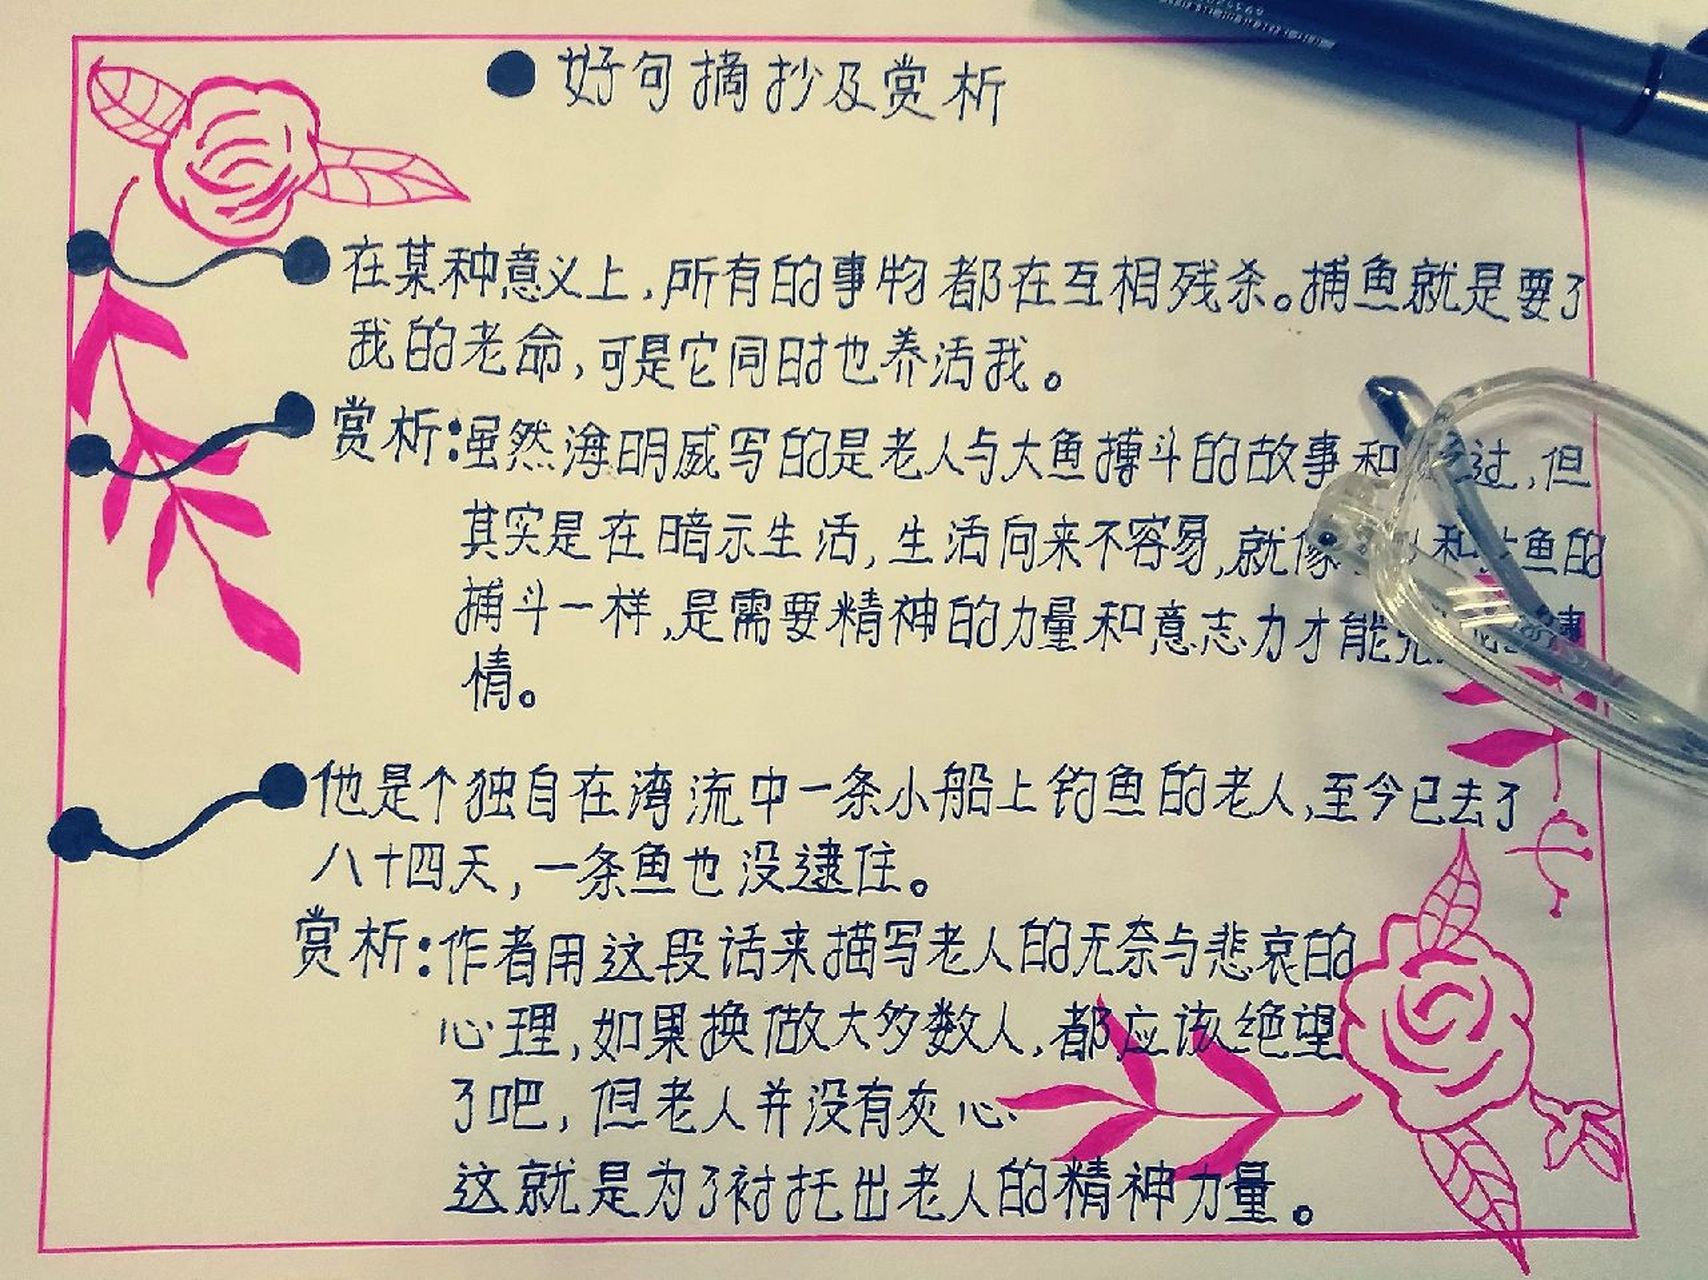 好句摘抄及赏析
在某种意义上,所有的事物都在互相残杀。捕鱼就是要了
我的老命,可是它同时也养活我。
赏析:虽然海明威写的是老人与大鱼搏斗的故事和过,但
其实是在暗示生活,生活向来不容易,就像和鱼的
捕斗一样,是需要精神的力量和意志力才能事
情。
他是个独自在湾流中一条小船上钓鱼的老人,至今已去了
八十四天,一条鱼也没逮住。
赏析:作者用这段话来描写老人的无奈与悲哀的
心理,如果换做大多数人,都应该绝望
了吧,但老人并没有灰心、
这就是为了衬托出老人的精神力量。